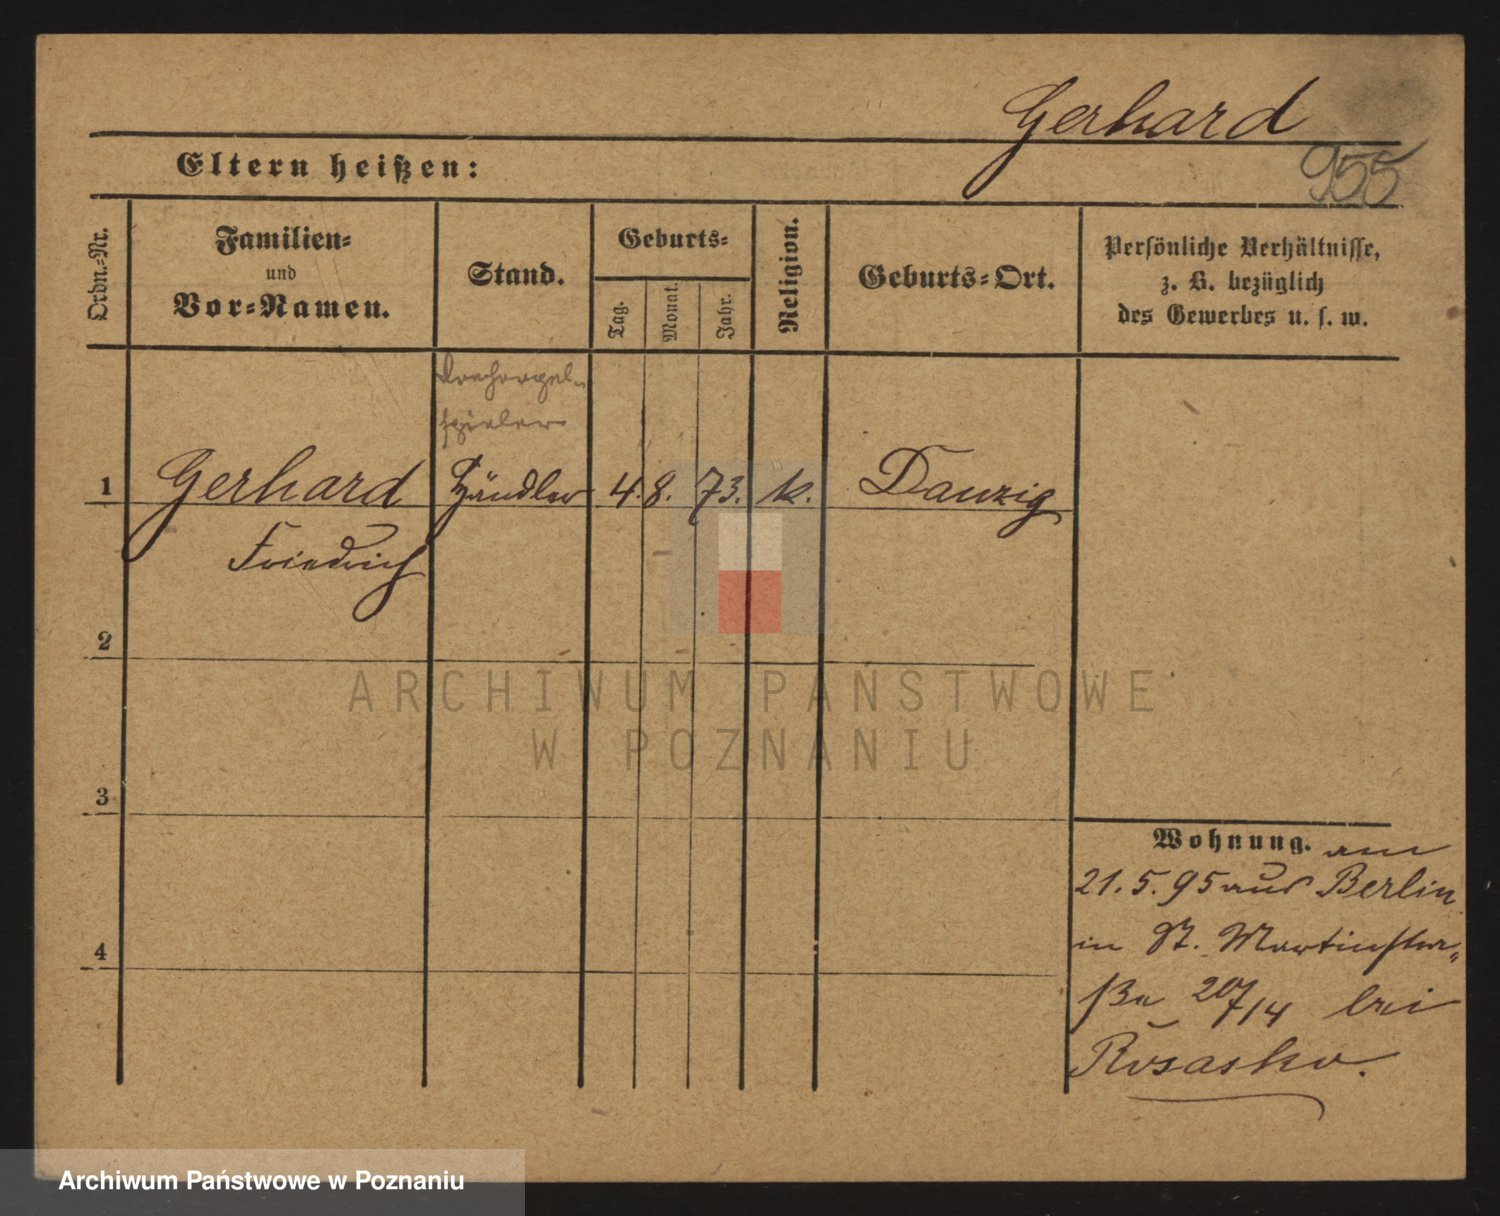 Gerhard
955
Eltern heißen:
Ordn.-Nr.
Familien-
und
Vor-Namen.
Stand.
Geburts-
Tag.
Monat.
Jahr.
Religion.
Geburts-Ort.
Persönliche Verhältnisse,
z. B. bezüglich
des Gewerbes u. s. w.
Drehorgel-
spieler
1 Gerhard Händler 4. 8. 73. k. Danzig
Friedrich
2
ARCHIWUM PAŃSTWOWE
W POZNANIU
3
Wohnung. am
21.5.95 aus Berlin
4
in St. Martinstra-
ße 20/14 bei
Archiwum Państwowe w Poznaniu